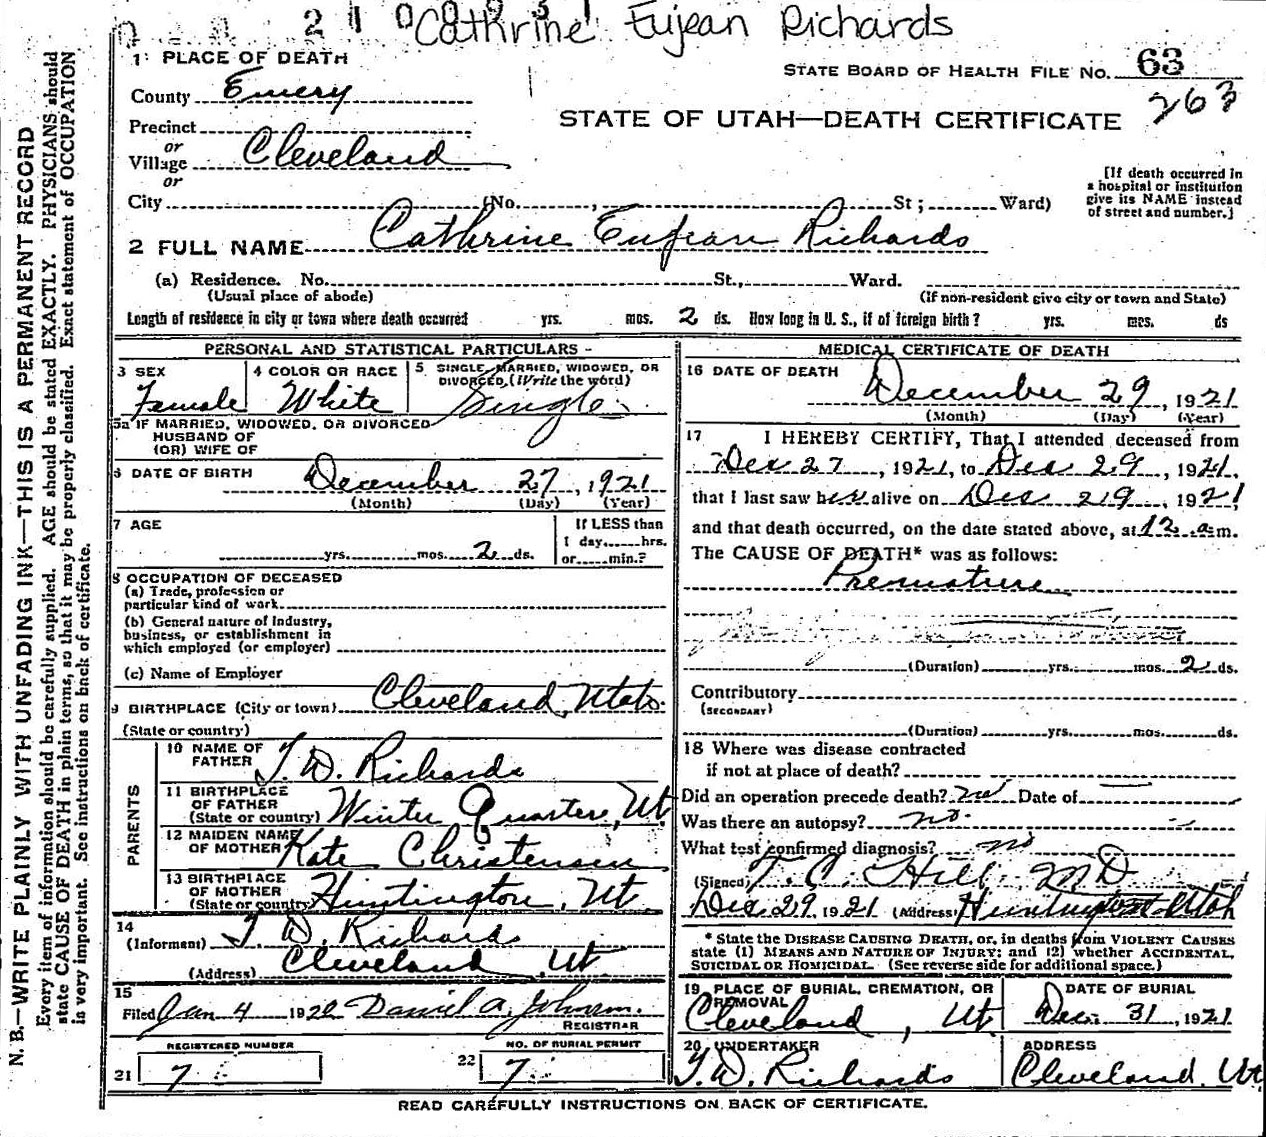 Cathrine Eujean Richards
1 PLACE OF DEATH
STATE BOARD OF HEALTH FILE NO. 63
263
County Emery
STATE OF UTAH—DEATH CERTIFICATE
Precinct
or
Village Cleveland
or
City (No. , St; Ward)
[If death occurred in
a hospital or institution
give its NAME instead
of street and number.]
2 FULL NAME Cathrine Eujean Richards
(a) Residence. No. St., Ward.
(Usual place of abode) (If non-resident give city or town and State)
Length of residence in city or town where death occurred yrs. mos. 2 ds. How long in U. S., if of foreign birth? yrs. mos. ds
PERSONAL AND STATISTICAL PARTICULARS
3 SEX Female
4 COLOR OR RACE White
5 SINGLE, MARRIED, WIDOWED, OR
DIVORCED, (Write the word)
Single
5a IF MARRIED, WIDOWED, OR DIVORCED
HUSBAND OF
(OR) WIFE OF
6 DATE OF BIRTH December 27, 1921
(Month) (Day) (Year)
7 AGE yrs. mos. 2 ds.
If LESS than
1 day, hrs.
or min.?
8 OCCUPATION OF DECEASED
(a) Trade, profession or
particular kind of work
(b) General nature of Industry,
business, or establishment in
which employed (or employer)
(c) Name of Employer
9 BIRTHPLACE (City or town) Cleveland, Utah.
(State or country)
PARENTS
10 NAME OF
FATHER T. D. Richards
11 BIRTHPLACE
OF FATHER
(State or country) Winter Quarter, Ut
12 MAIDEN NAME
OF MOTHER Kate Christensen
13 BIRTHPLACE
OF MOTHER
(State or country) Huntington, Ut
14
(Informent) T. D. Richards
(Address) Cleveland, Ut
15
Filed Jan 4 1922 Daniel A. Johnson.
REGISTRAR
REGISTERED NUMBER
21 7
NO. OF BURIAL PERMIT
22 7
MEDICAL CERTIFICATE OF DEATH
16 DATE OF DEATH
December 29, 1921
(Month) (Day) (Year)
17 I HEREBY CERTIFY, That I attended deceased from
Dec 27, 1921, to Dec 29, 1921,
that I last saw her alive on Dec 29, 1921
and that death occurred, on the date stated above, at 12 a.m.
The CAUSE OF DEATH* was as follows:
Premature
(Duration) yrs. mos. 2 ds.
Contributory
(SECONDARY)
(Duration) yrs. mos. ds.
18 Where was disease contracted
if not at place of death?
Did an operation precede death? no Date of
Was there an autopsy? no.
What test confirmed diagnosis? no
(Signed) T. C. Hill MD
Dec. 29, 1921 (Address) Huntington Utah
* State the DISEASE CAUSING DEATH, or, in deaths from VIOLENT CAUSES
state (1) MEANS AND NATURE OF INJURY; and (2) whether ACCIDENTAL,
SUICIDAL or HOMICIDAL. (See reverse side for additional space.)
19 PLACE OF BURIAL, CREMATION, OR
REMOVAL
Cleveland, Ut
DATE OF BURIAL
Dec. 31, 1921
20 UNDERTAKER
T. D. Richards
ADDRESS
Cleveland, Ut
READ CAREFULLY INSTRUCTIONS ON BACK OF CERTIFICATE.
N. B.—WRITE PLAINLY WITH UNFADING INK—THIS IS A PERMANENT RECORD
Every item of information should be carefully supplied. AGE should be stated EXACTLY. PHYSICIANS should
state CAUSE OF DEATH in plain terms, so that it may be properly classified. Exact statement of OCCUPATION
is very important. See instructions on back of certificate.